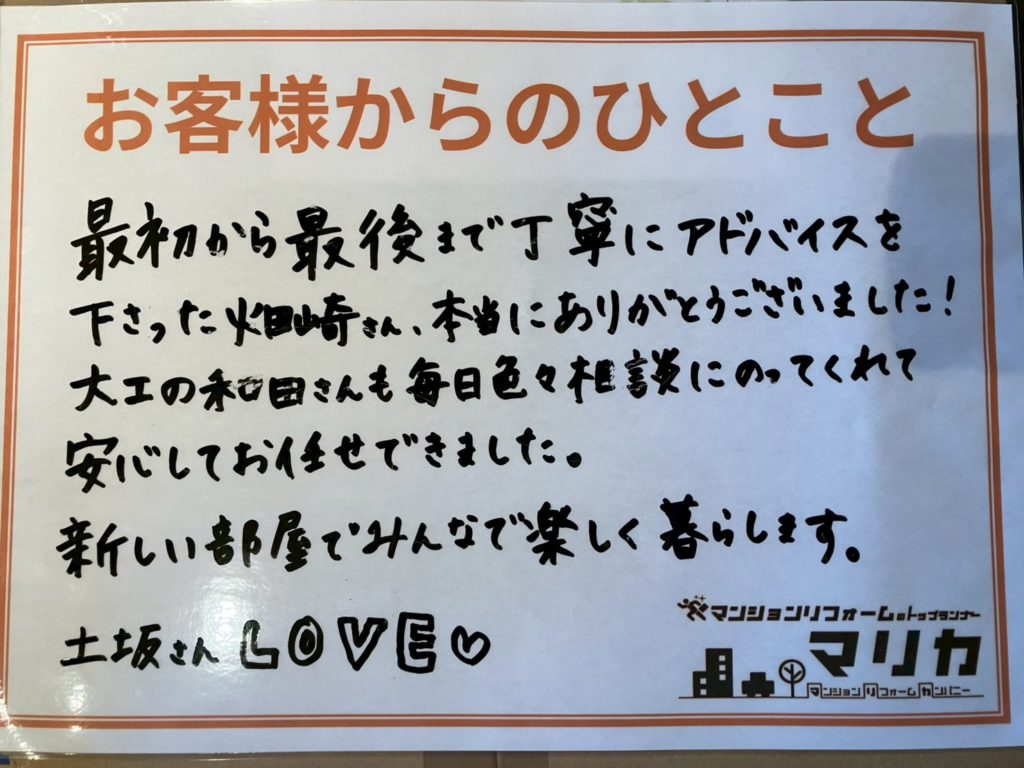 お客様からのひとこと
最初から最後まで丁寧にアドバイスを
下さった畑崎さん、本当にありがとうございました!
大工の和田さんも毎日色々相談にのってくれて
安心してお任せできました。
新しい部屋でみんなで楽しく暮らします。
土坂さん LOVE♡
マンションリフォームのトップランナー
マリカ
マンションリフォームカンパニー